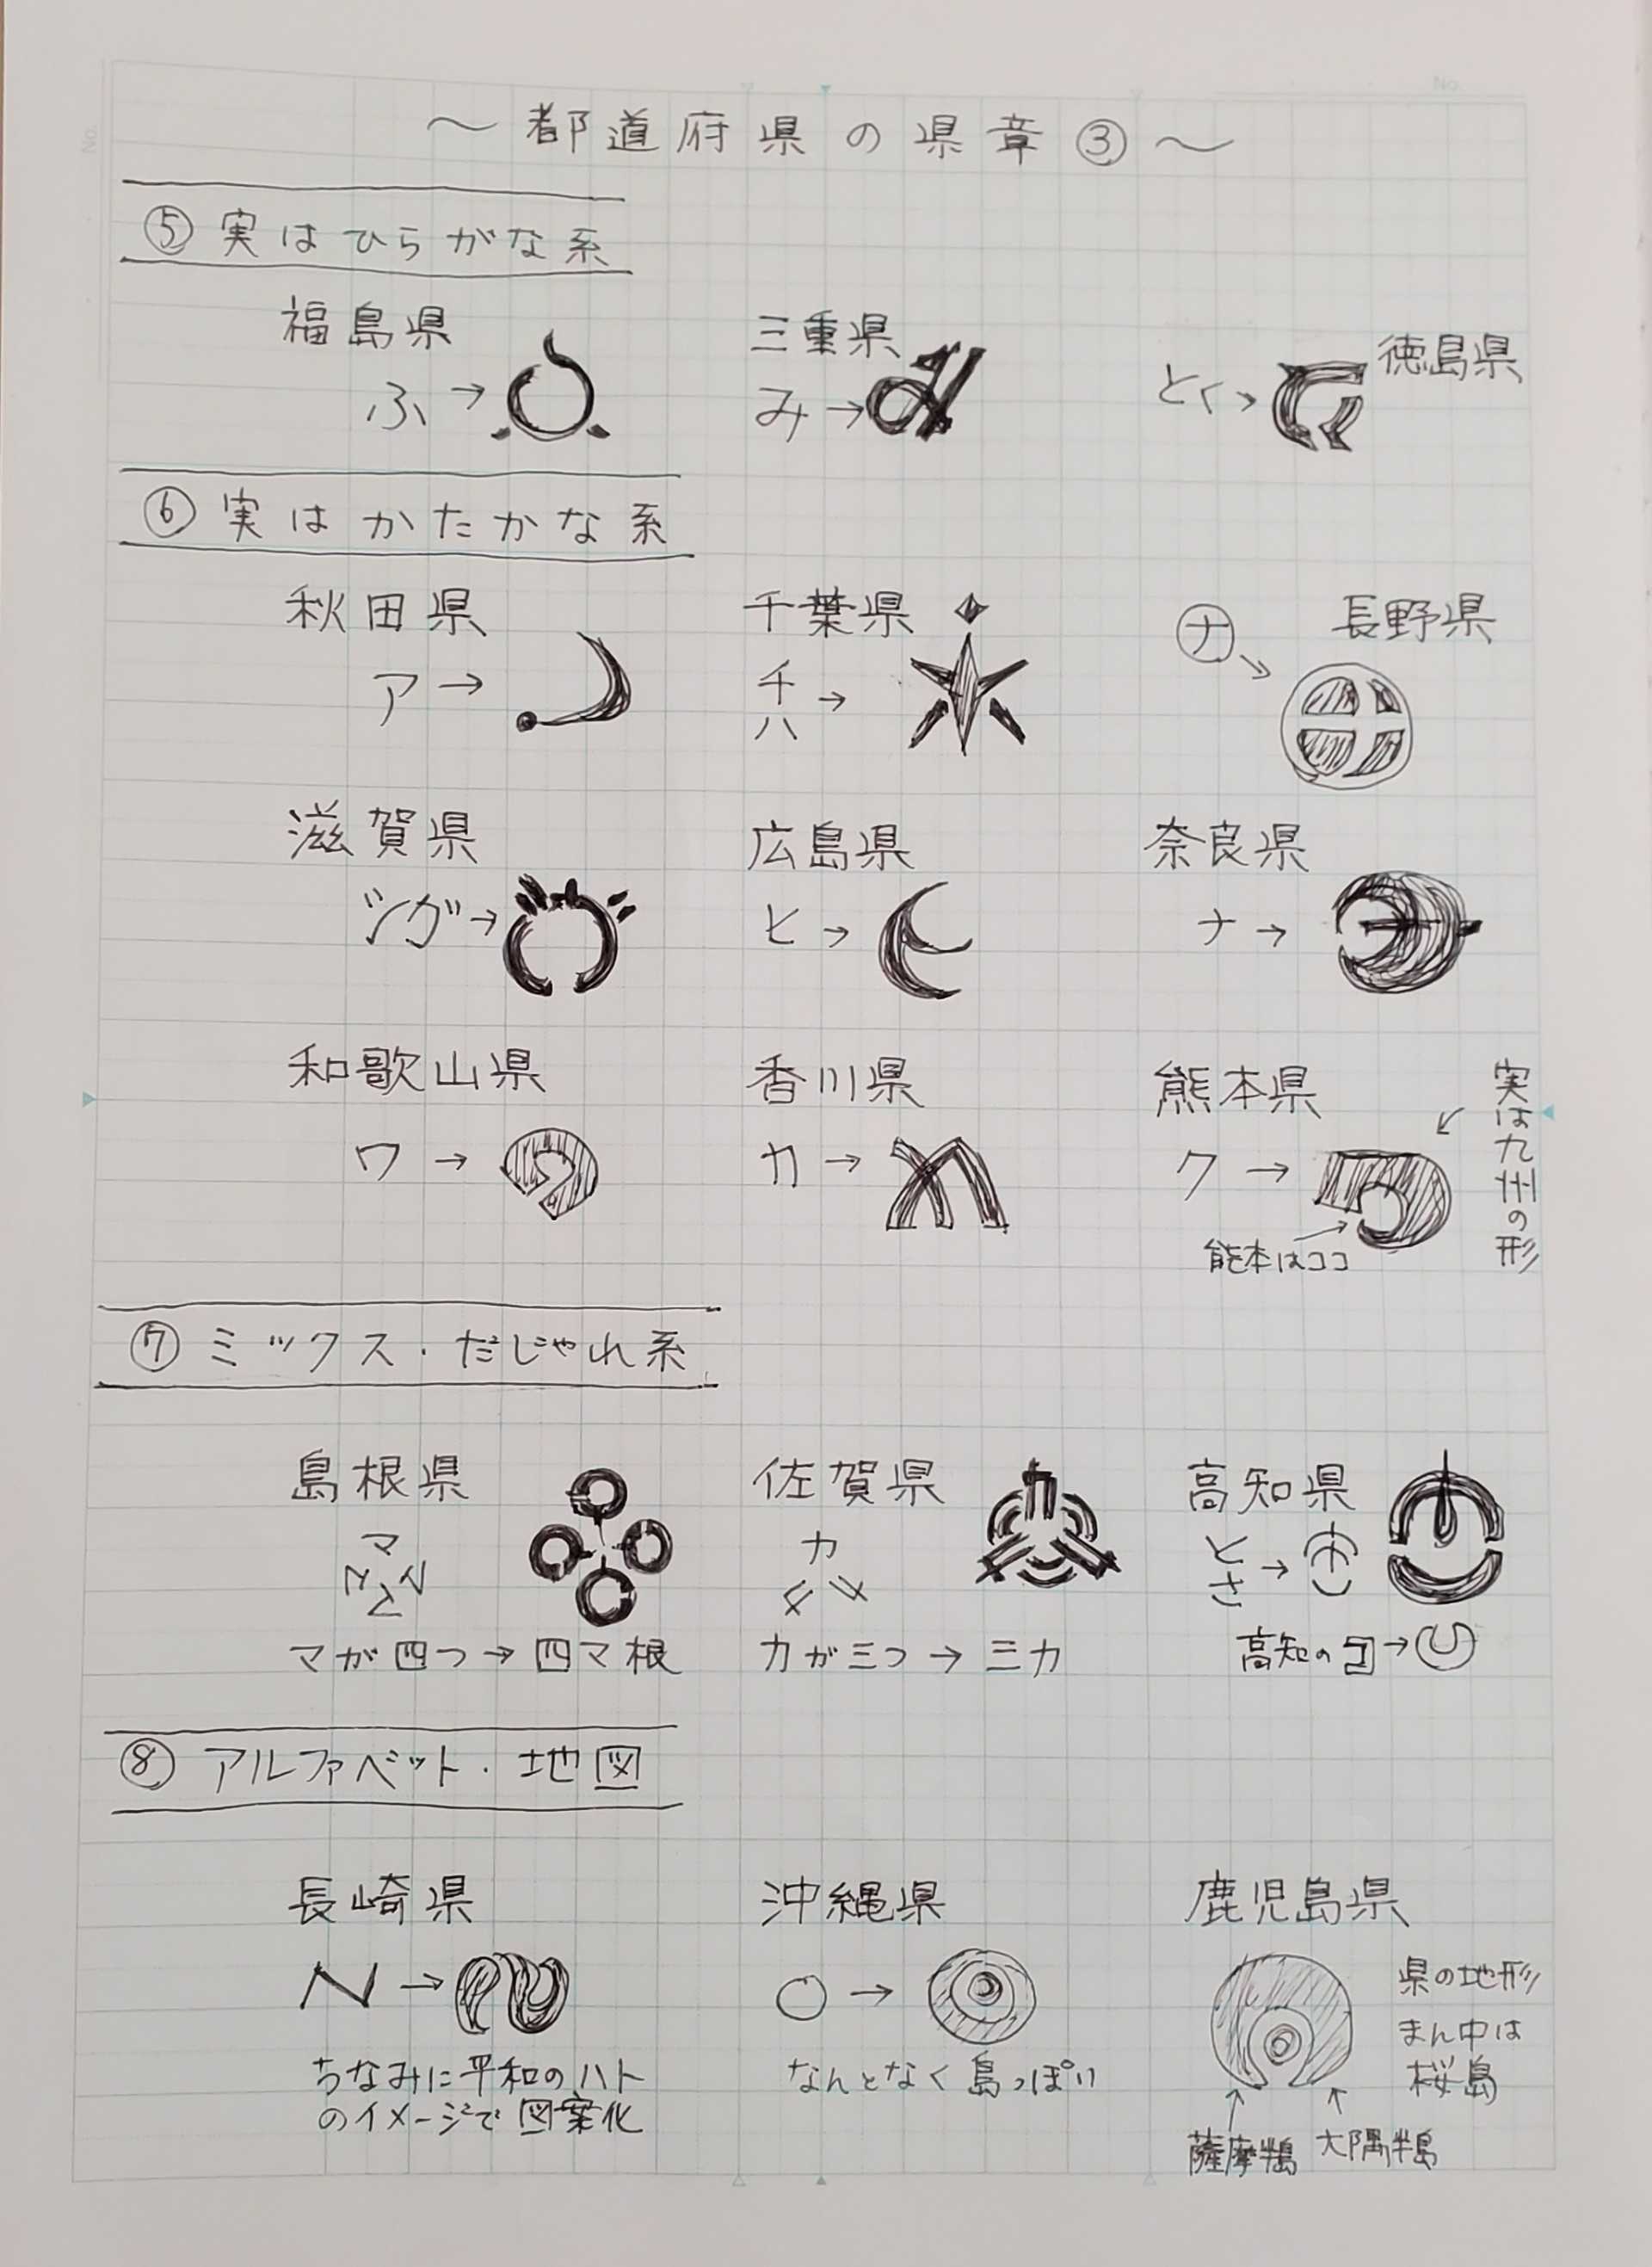 ～都道府県の県章③～
⑤実はひらがな系
福島県
ふ→
三重県
み→
徳島県
とく→
⑥実はかたかな系
秋田県
ア→
千葉県
千
ハ→
長野県
ナ
滋賀県
シガ→
広島県
ヒ→
奈良県
ナ→
和歌山県
ワ→
香川県
カ→
熊本県
ク→
熊本はココ
実は九州の形
⑦ミックス・だじゃれ系
島根県
マ
マ マ
マ
マが四つ→四マ根
佐賀県
カ
カ カ
カが三つ→三カ
高知県
とさ→
高知のコ→
⑧アルファベット・地図
長崎県
N→
ちなみに平和のハト
のイメージで図案化
沖縄県
○→
なんとなく島っぽい
鹿児島県
県の地形
まん中は
桜島
薩摩半島
大隅半島
No.
No.